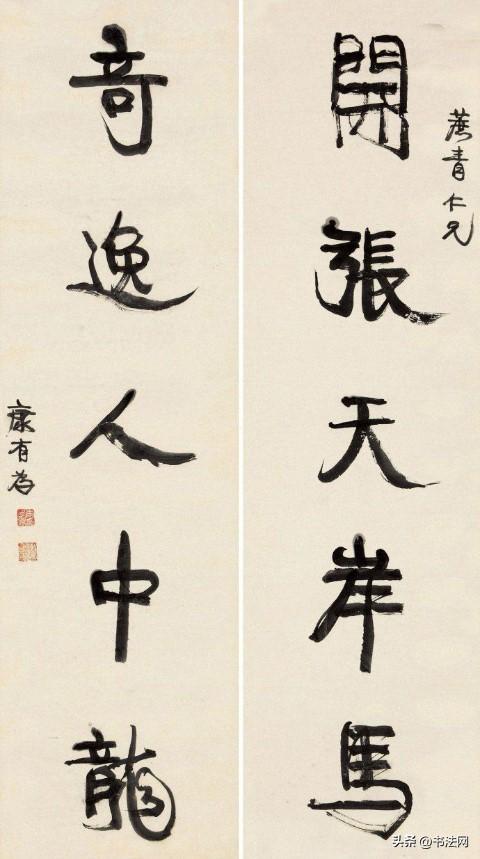 青仁兄
開張天岸馬
奇逸人中龍
康有為
头条 @书法网